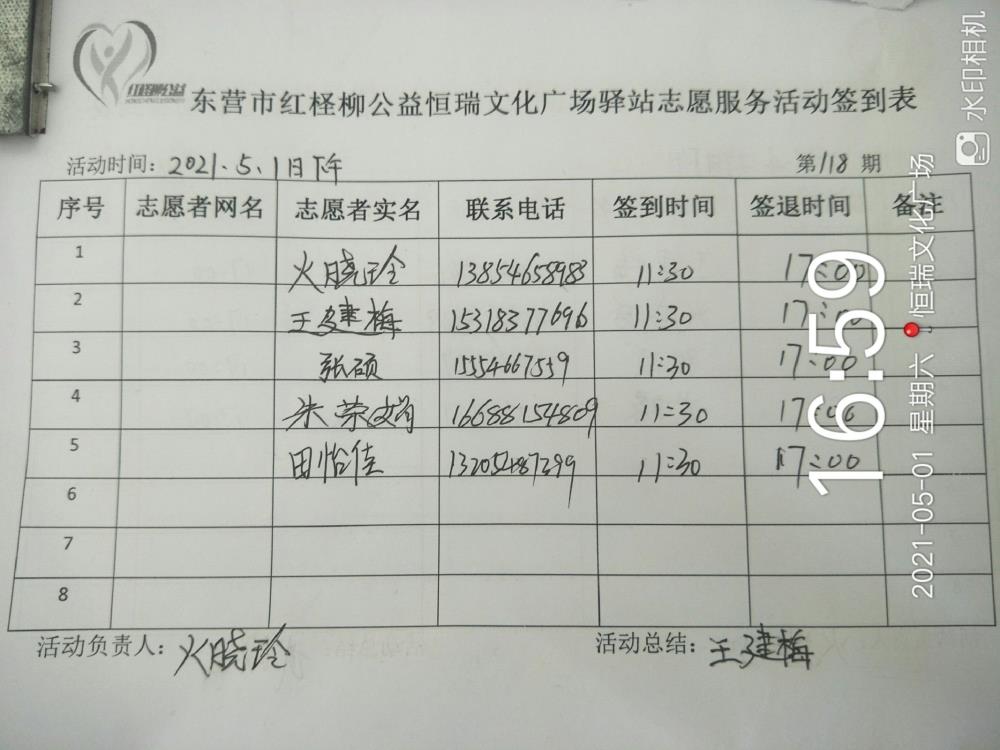 红柽柳公益
东营市红柽柳公益恒瑞文化广场驿站志愿服务活动签到表
活动时间：2021.5.1日下午 第118期
序号 志愿者网名 志愿者实名 联系电话 签到时间 签退时间 备注
1 火晓玲 13854658983 11:30 17:00
2 王建梅 15318377696 11:30 17:00
3 张硕 15554667559 11:30 17:00
4 朱荣 16688154809 11:30 17:00
5 田怡佳 13205487299 11:30 17:00
6
7
8
活动负责人：火晓玲 活动总结：王建梅
16:59
2021-05-01 星期六 恒瑞文化广场
水印相机